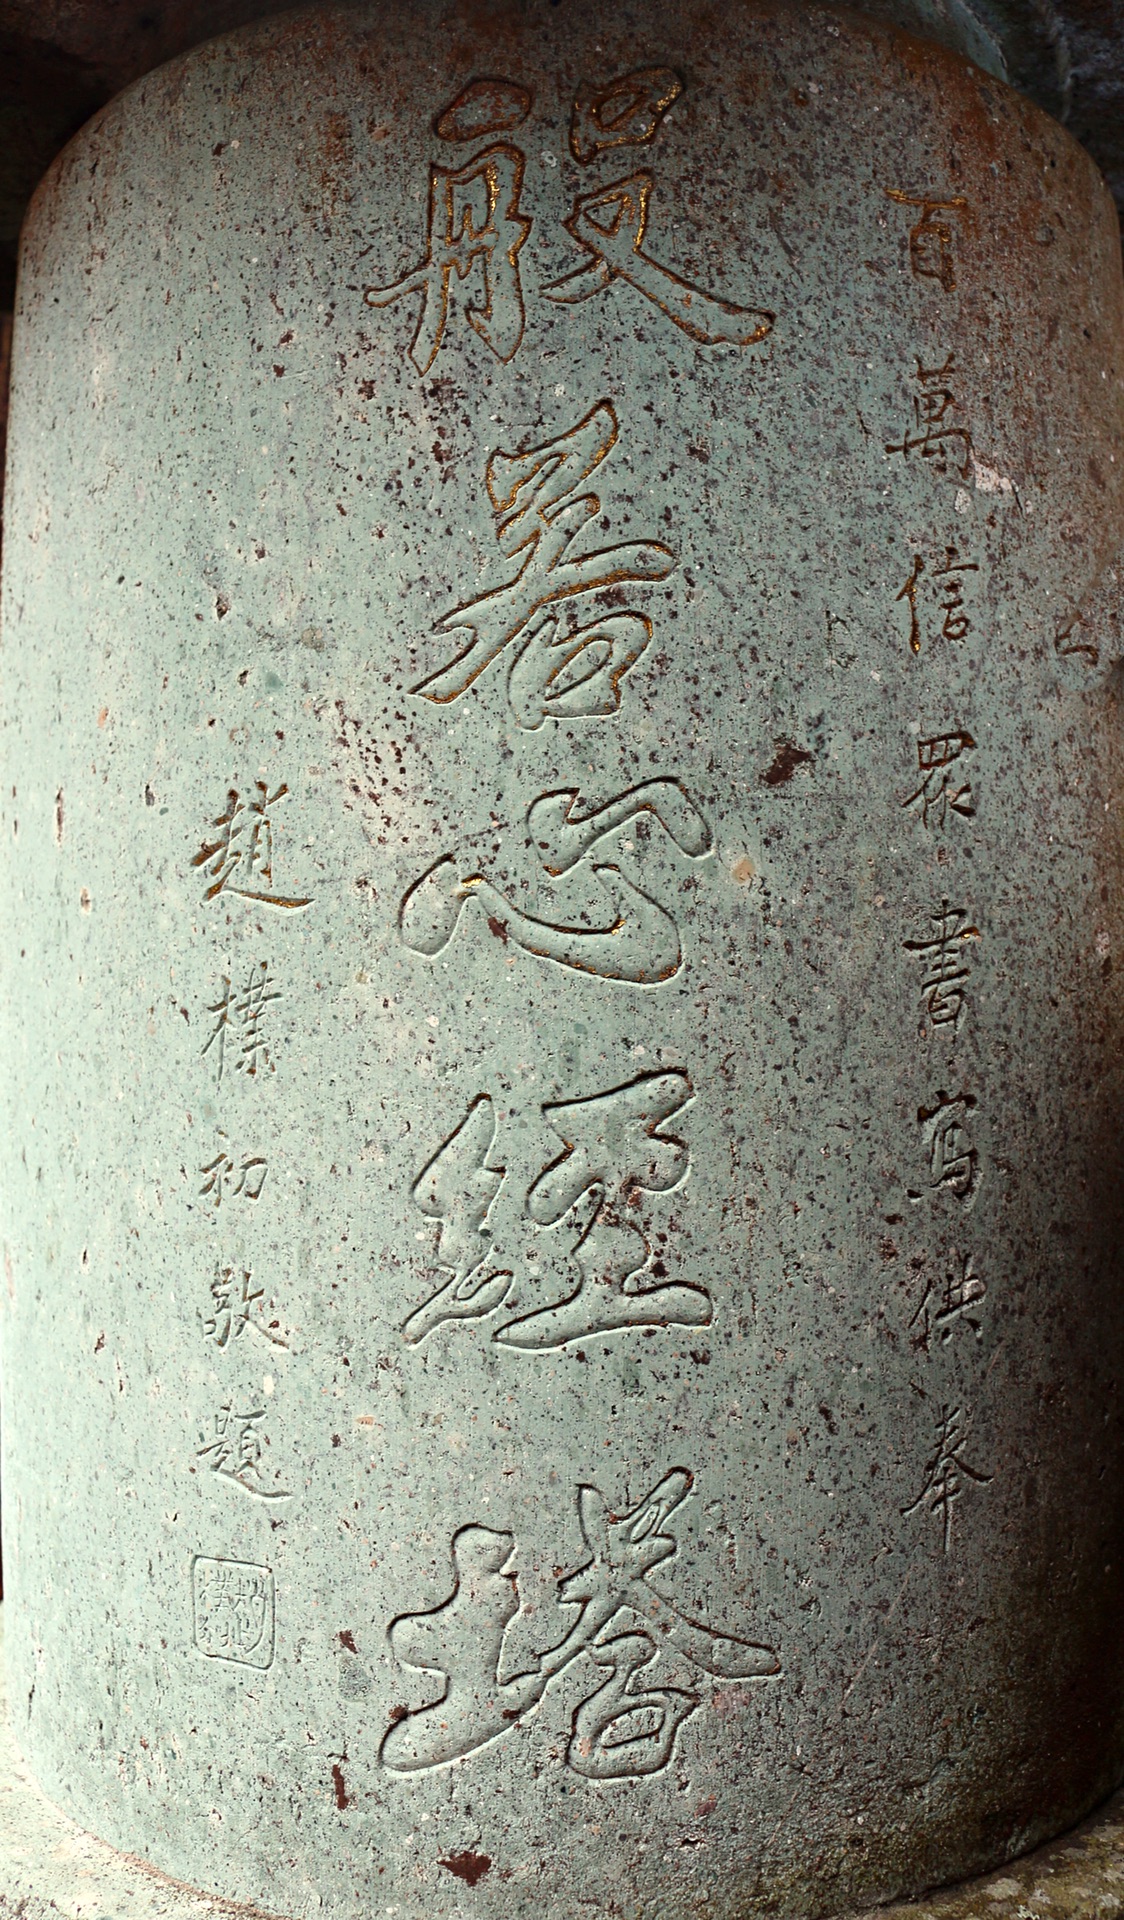 百萬信眾書寫供奉
般若心經塔
趙樸初敬題